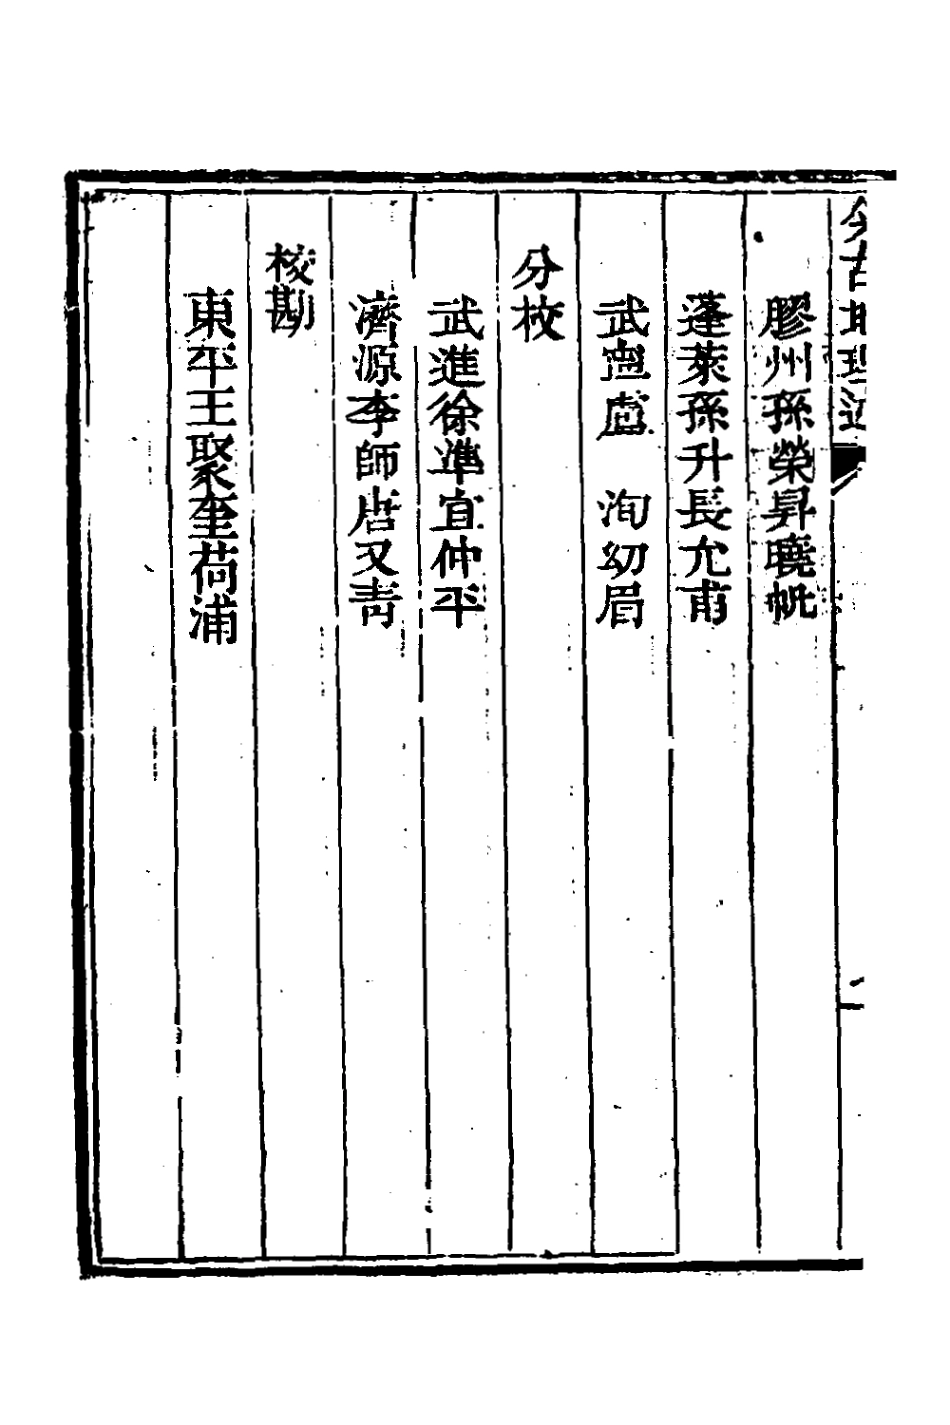 今古地理述
膠州孫榮昇曉帆
蓬萊孫升長允甫
武寍盧　洵幼眉
分校
武進徐準宜仲平
濟源李師唐又青
校勘
東平王聚奎荷浦